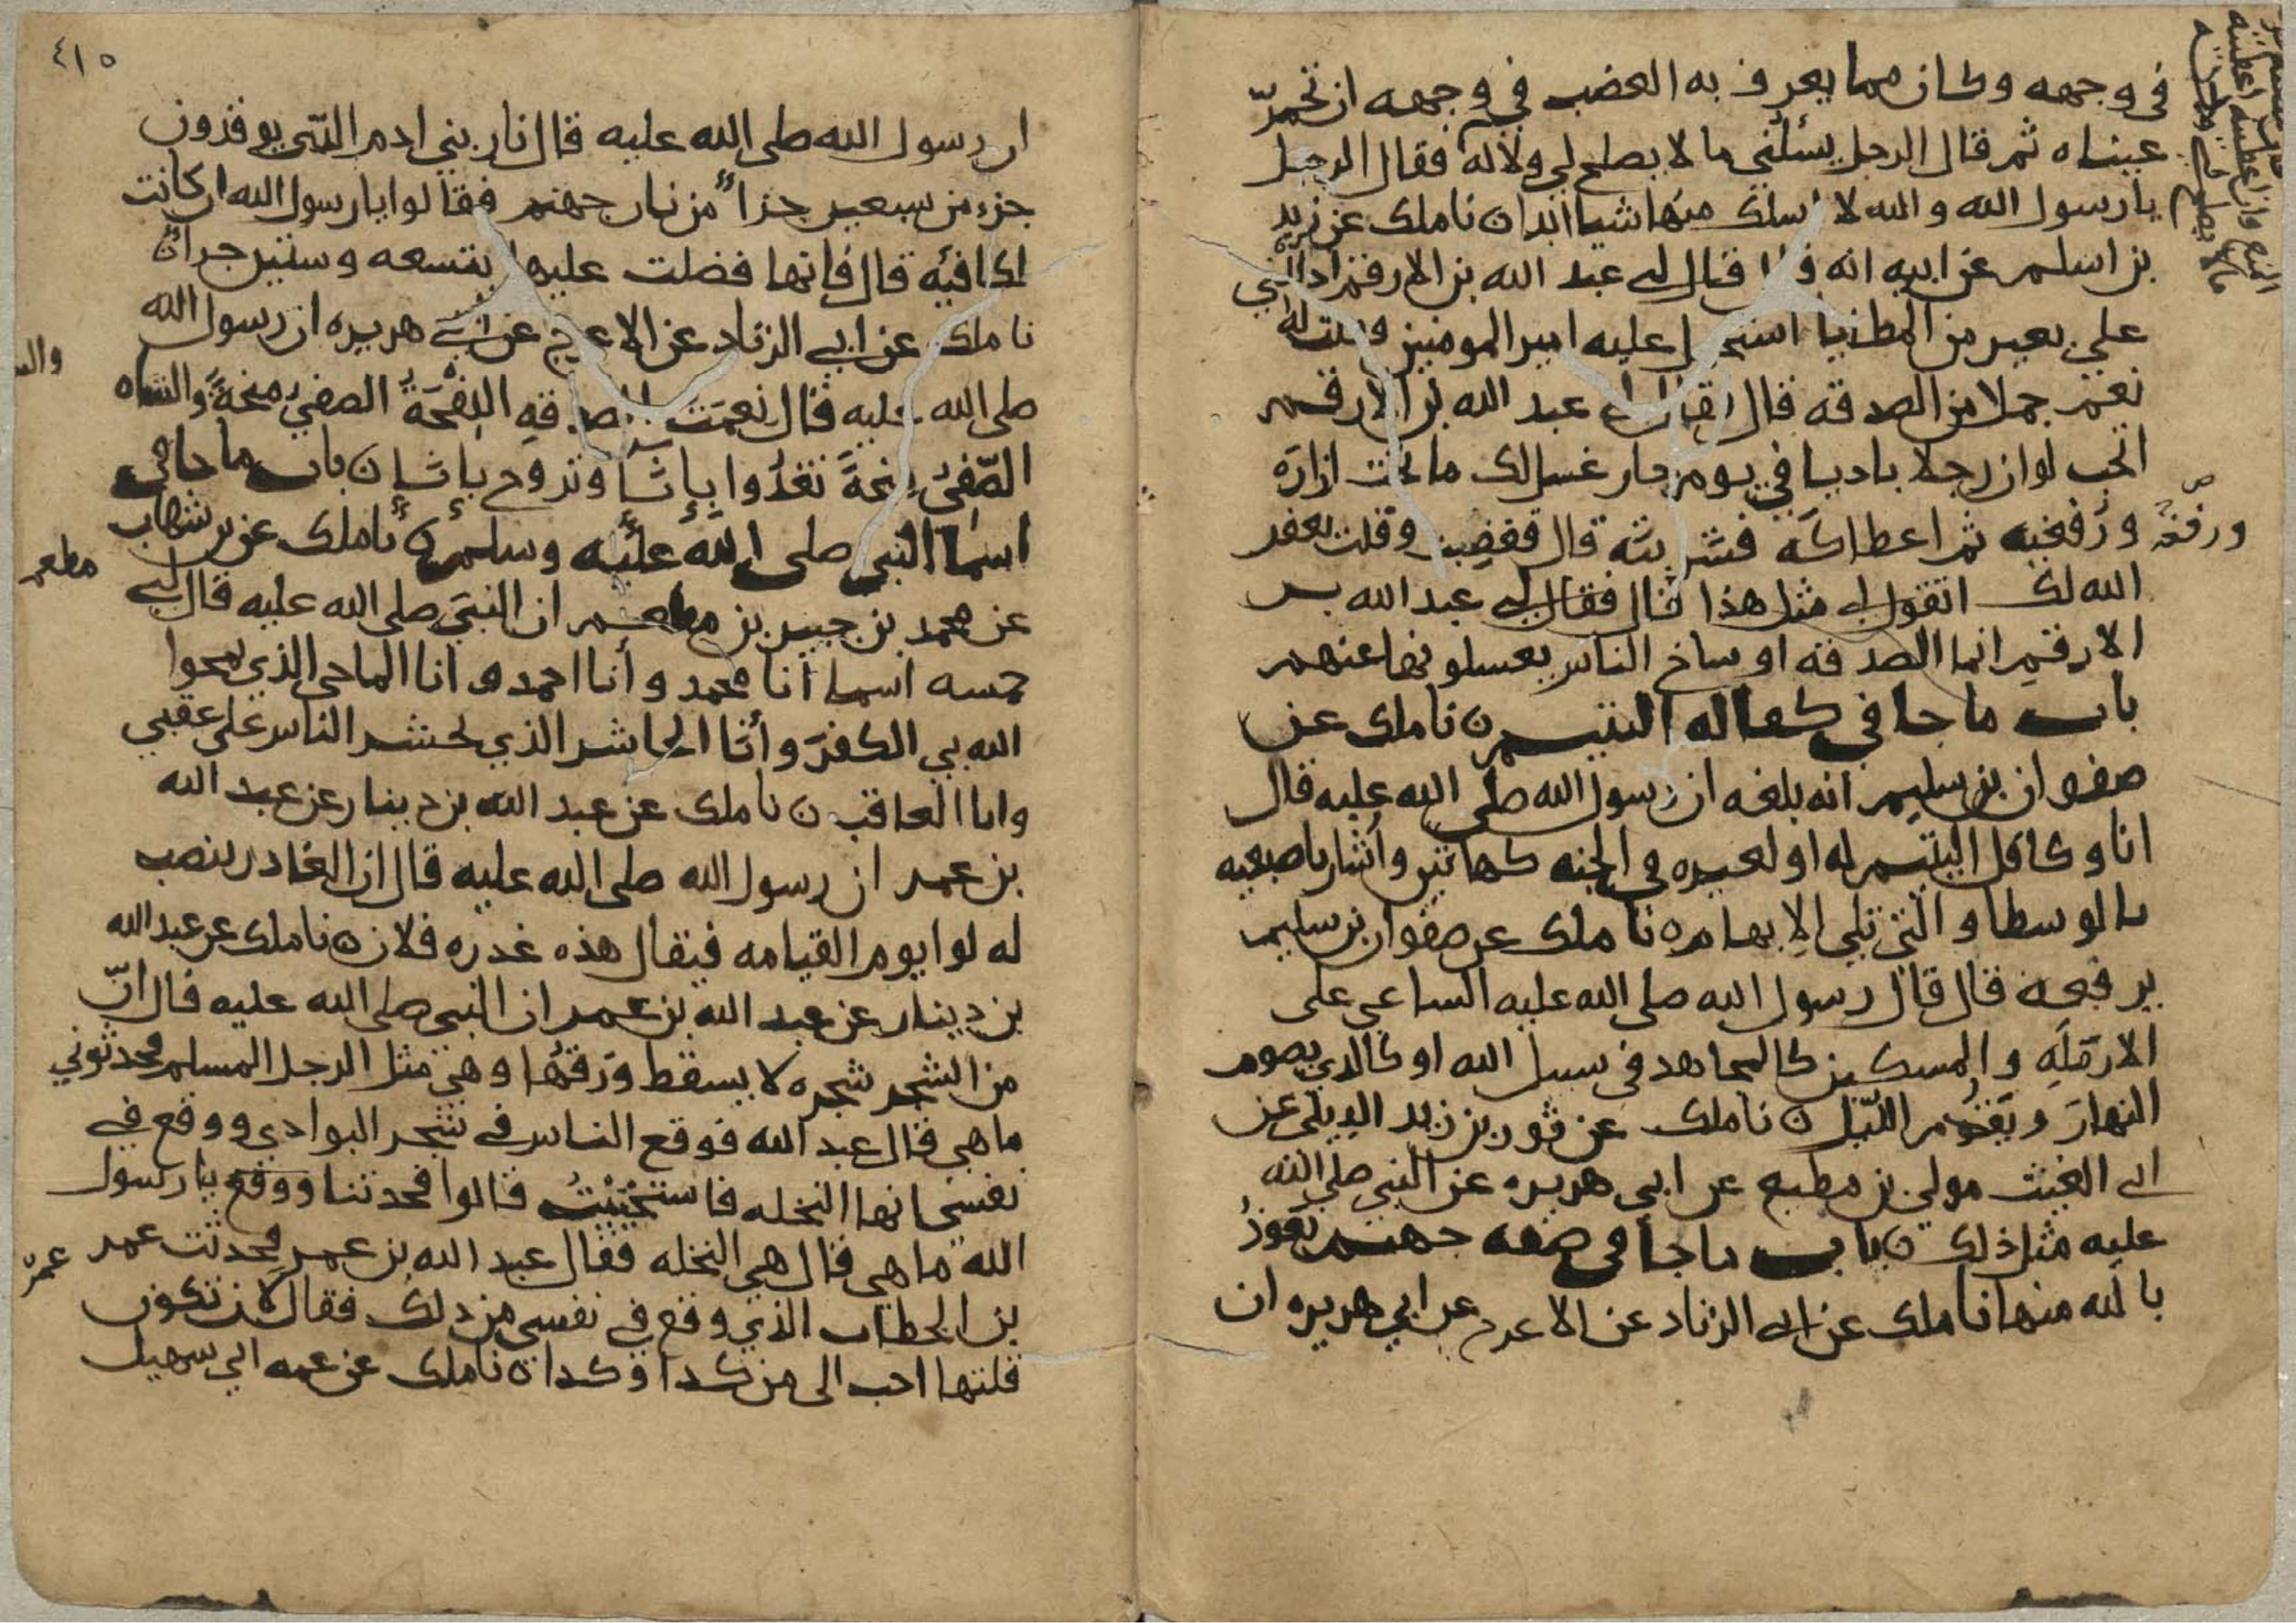 في وجهه وكان مما يعرف به الغضب في وجهه ان تحمرّ
عيناه ثم قال الرجل يسئلني ما لا يصلح لي ولا له فقال الرجل
يا رسول الله والله لا اسلك منها شيا ابدا ن نا ملك عن زيد
بن اسلم عن ابيه انه قال قال لي عبد الله بن الارقم ادللني
علي بعير من المطايا استحمل عليه امير المومنين وقلت له
نعم جملا من الصدقه قال فقال لي عبد الله بن الارقم
اتحب لو ان رجلا بادنا في يوم حار غسل لك ما تحت ازاره
ورفغيه ثم اعطاكه فشربته قال فغضبت وقلت يغفر
ورفغه
الله لك اتقول لي مثل هذا قال فقال لي عبد الله بن
الارقم انما الصدقه اوساخ الناس يغسلونها عنهم
باب ما جا في كفاله اليتيم ن نا ملك عن
صفوان بن سليم انه بلغه ان رسول الله صلى الله عليه قال
انا وكافل اليتيم له او لغيره في الجنه كهاتين واشار باصبعيه
بالوسطا والتي تلي الابهام ن نا ملك عن صفوان بن سليم
يرفعه قال قال رسول الله صلى الله عليه الساعي على
الارمله والمسكين كالمجاهد في سبيل الله او كالذي يصوم
النهار ويقوم الليل ن نا ملك عن ثور بن زيد الديلي عن
ابي الغيث مولي بن مطيع عن ابي هريره عن النبي صلى الله
عليه مثل ذلك ن باب ما جا في صفه جهنم نعوذ
بالله منها نا ملك عن ابي الزناد عن الاعرج عن ابي هريره ان
٤١٥
ان رسول الله صلى الله عليه قال نار بني ادم التي يوقدون
جزء من سبعين جزا من نار جهنم فقالوا يا رسول الله ان كانت
لكافيه قال فانها فضلت عليها بتسعه وستين جزا ن
نا ملك عن ابي الزناد عن الاعرج عن ابي هريره ان رسول الله
صلى الله عليه قال نعمت الصدقه اللقحة الصفي منحة والشاه
الصّفي منحة تغدوا بإنا وتروح بإنا ن باب ما جا في
اسما النبي صلى الله عليه وسلم ن نا ملك عن بن شهاب
عن محمد بن جبير بن مطعم ان النبي صلى الله عليه قال لي
مطعم
خمسه اسما انا محمد وأنا احمد وانا الماحي الذي يمحوا
الله بي الكفر وأنا الحاشر الذي يحشر الناس على عقبي
وانا العاقب ن نا ملك عن عبد الله بن دينار عن عبد الله
بن عمر ان رسول الله صلى الله عليه قال ان الغادر ينصب
له لوا يوم القيامه فيقال هذه غدره فلان ن نا ملك عن عبد الله
بن دينار عن عبد الله بن عمر ان النبي صلى الله عليه قال انّ
من الشجر شجره لا يسقط ورقها وهي مثل الرجل المسلم فحدثوني
ما هي قال عبد الله فوقع الناس في شجر البوادي ووقع في
نفسي انها النخله فاستحييت قالوا فحدثنا يا رسول
الله ما هي قال هي النخله فقال عبد الله بن عمر فحدثت عمر
عمرَ
بن الخطاب الذي وقع في نفسي من ذلك فقال لان تكون
قلتها احب الى من كذا وكذا ن نا ملك عن عمه ابي سهيل